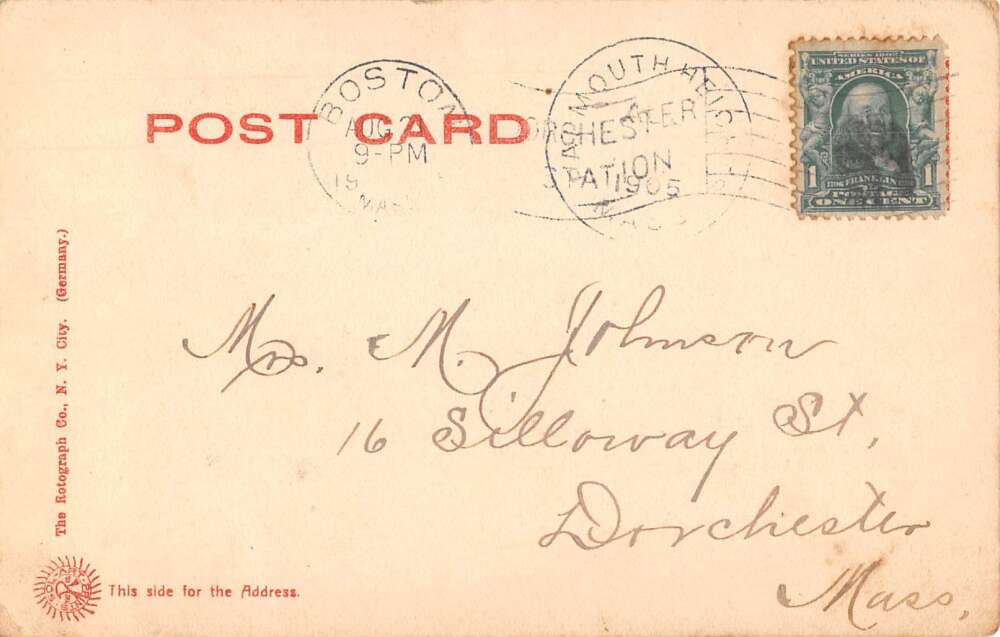 BOSTON
AUG
9-PM
19
MASS
DORCHESTER
STATION
MOUTH HEIG
1905
MASS
SERIES 1902
UNITED STATES OF
AMERICA
1 1
FRANKLIN
POSTAGE
ONE CENT
POST CARD
Mrs. M. Johnson
16 Silloway St,
Dorchester
Mass,
The Rotograph Co., N. Y. City. (Germany.)
SOL-ART PRINTS
This side for the Address.